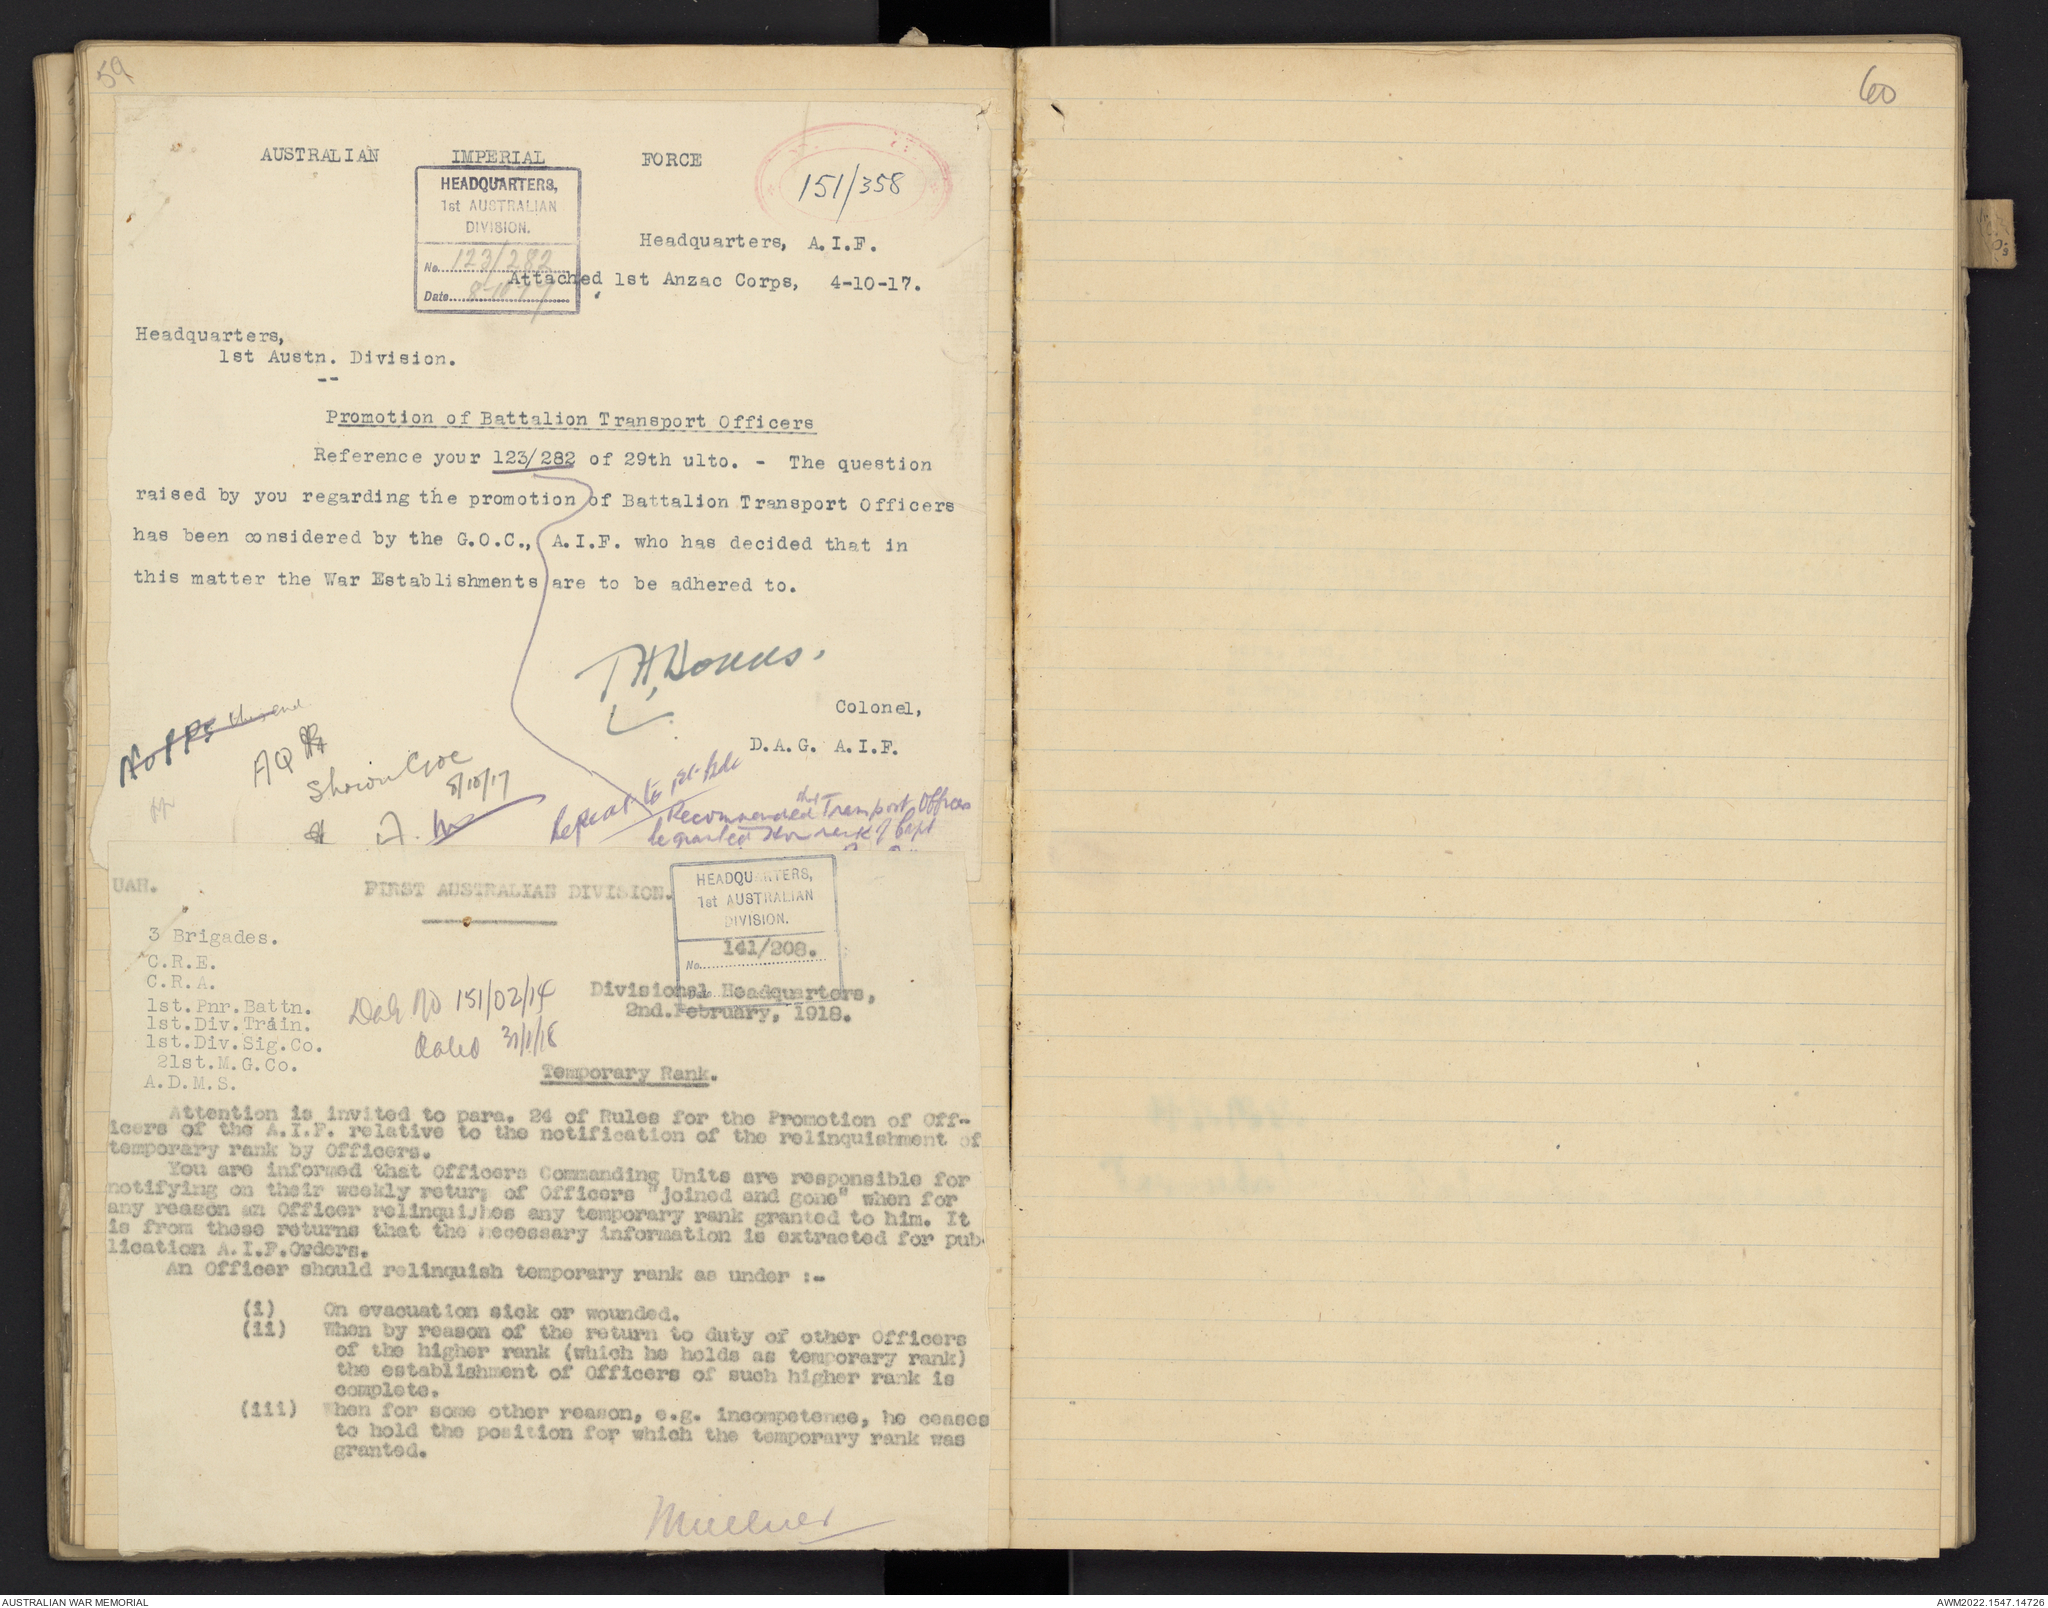 59
AUSTRALIAN IMPERIAL FORCE
HEADQUARTERS,
1st AUSTRALIAN
DIVISION.
No. 123/282
Date 8-10-17
151/358
Headquarters, A.I.F.
Attached 1st Anzac Corps, 4-10-17.
Headquarters,
1st Austn. Division.
--
Promotion of Battalion Transport Officers
Reference your 123/282 of 29th ulto. - The question
raised by you regarding the promotion of Battalion Transport Officers
has been considered by the G.O.C., A.I.F. who has decided that in
this matter the War Establishments are to be adhered to.
Colonel,
D.A.G. A.I.F.
AQ
Shown GOC
8/10/17
Repeat to
Recommended that Transport Officers
be granted Hon rank of Capt
UAH.
FIRST AUSTRALIAN DIVISION.
HEADQUARTERS,
1st AUSTRALIAN
DIVISION.
No. 141/208.
3 Brigades.
C.R.E.
C.R.A.
1st.Pnr.Battn.
1st.Div.Train.
1st.Div.Sig.Co.
21st.M.G.Co.
A.D.M.S.
DAG No 151/02/14
dated 31/1/18
Divisional Headquarters,
2nd.February, 1918.
Temporary Rank.
Attention is invited to para. 24 of Rules for the Promotion of Off-
icers of the A.I.F. relative to the notification of the relinquishment of
temporary rank by Officers.
You are informed that Officers Commanding Units are responsible for
notifying on their weekly return of Officers "joined and gone" when for
any reason an Officer relinquishes any temporary rank granted to him. It
is from these returns that the necessary information is extracted for pub-
lication A.I.F.Orders.
An Officer should relinquish temporary rank as under :-
(i) On evacuation sick or wounded.
(ii) When by reason of the return to duty of other Officers
of the higher rank (which he holds as temporary rank)
the establishment of Officers of such higher rank is
complete.
(iii) When for some other reason, e.g. incompetence, he ceases
to hold the position for which the temporary rank was
granted.
60
AUSTRALIAN WAR MEMORIAL
AWM2022.1547.14726